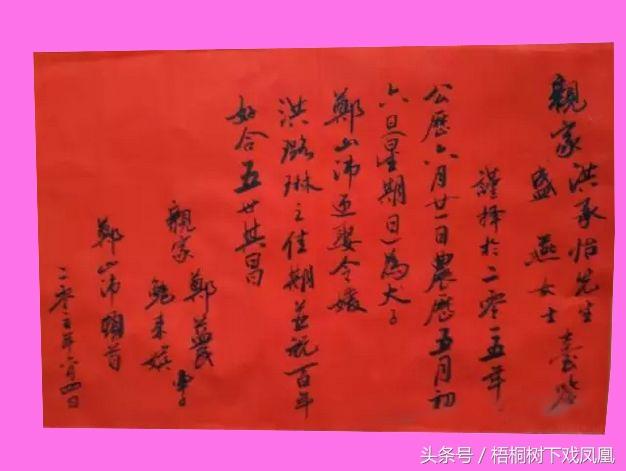 親家洪承怡先生臺鑒
盛燕女士
謹择於二零一五年
公歷六月廿一日農歷五月初
六日星期日為大子
鄭山沛迎娶令媛
洪璐琳之佳期並祝百年
好合五世其昌
親家鄭益民
鮑来嫔
鄭山沛頓首
二零一五年六月四日
头条号 / 梧桐树下戏凤凰